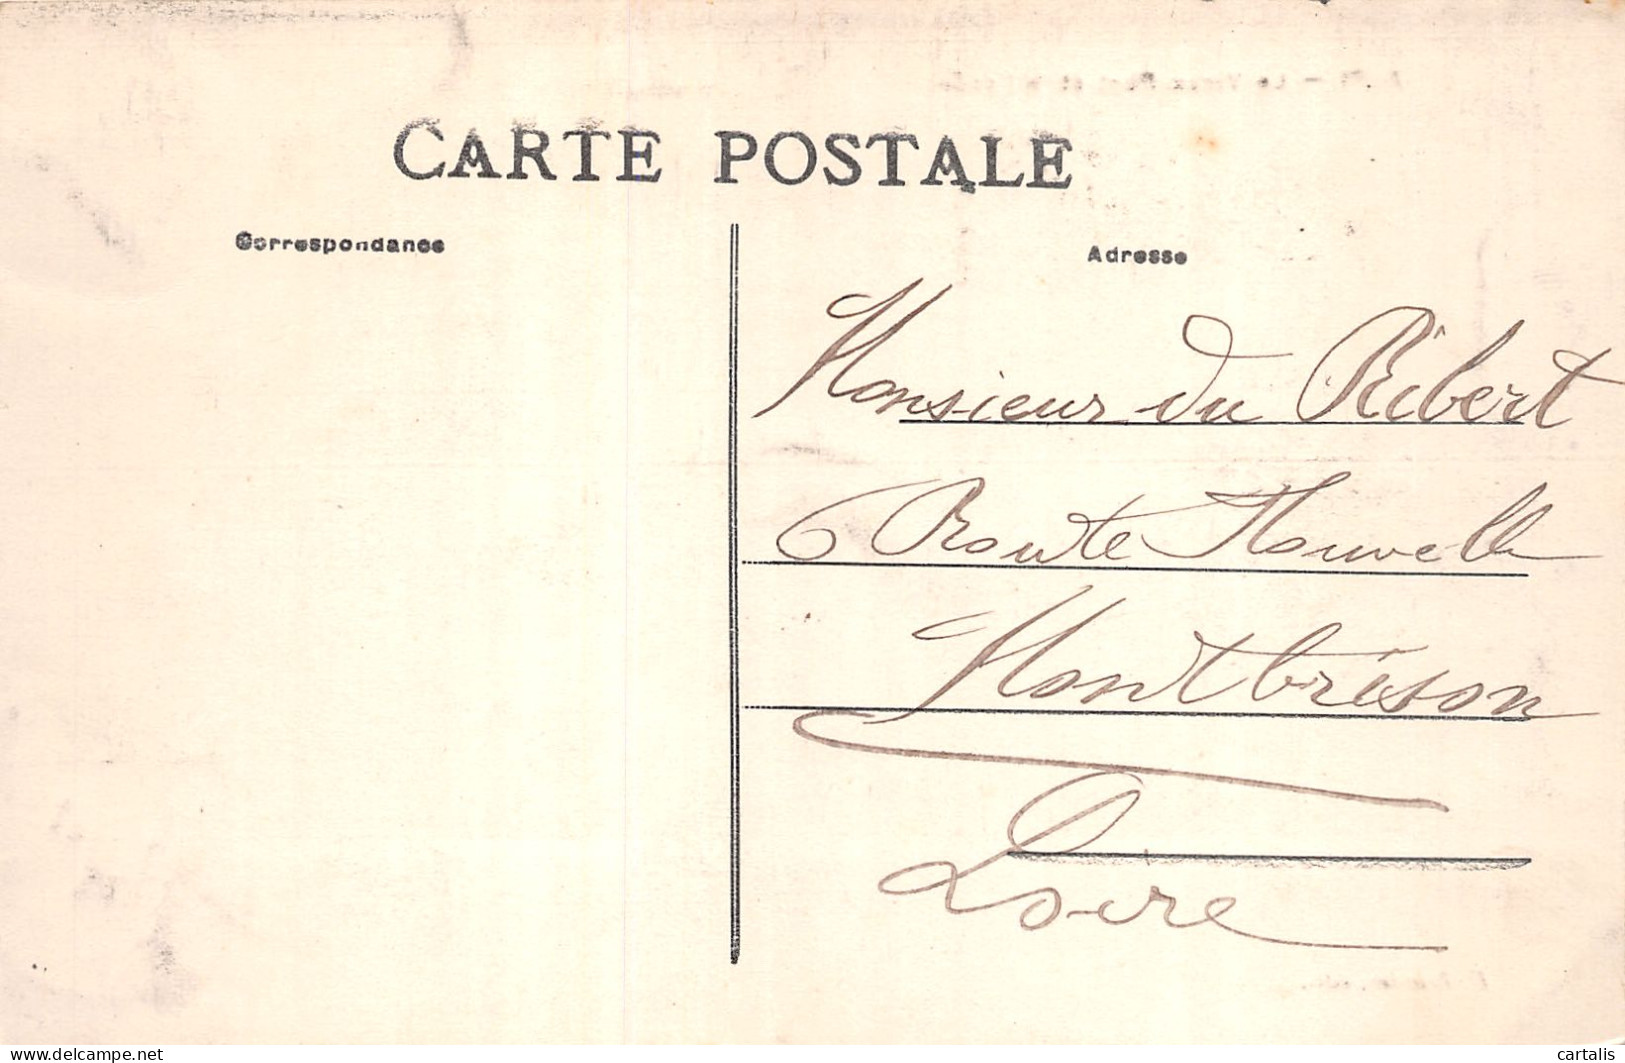 CARTE POSTALE
Correspondance
Adresse
Monsieur du Ribert
6 Route Nouvelle
Montbrison
Loire
delcampe.net
cartalis